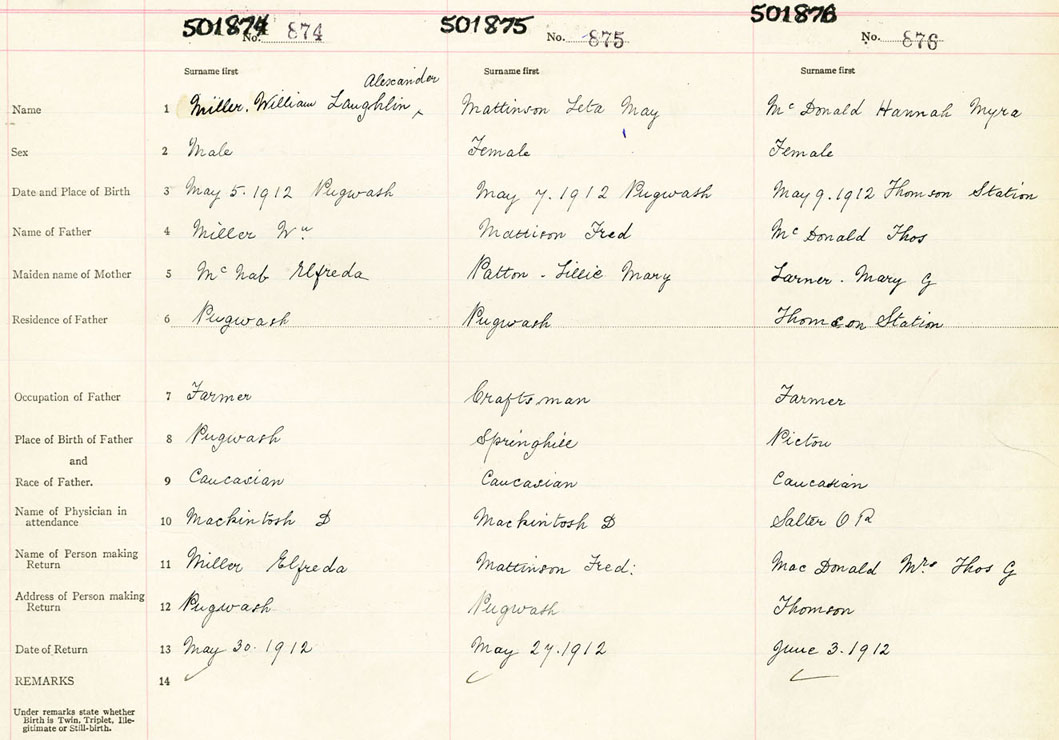 501874 501875 501876
No. 874 No. 875 No. 876
Surname first Surname first Surname first
Alexander
Name 1 Miller. William Laughlin Mattinson Leta May Mc Donald Hannah Myra
Sex 2 Male Female Female
Date and Place of Birth 3 May 5. 1912 Pugwash May 7. 1912 Pugwash May 9. 1912 Thomson Station
Name of Father 4 Miller Wm Mattison Fred Mc Donald Thos
Maiden name of Mother 5 Mc Nab Elfreda Patton - Lillie Mary Larner. Mary G
Residence of Father 6 Pugwash Pugwash Thomson Station
Occupation of Father 7 Farmer Craftsman Farmer
Place of Birth of Father 8 Pugwash Springhill Pictou
and
Race of Father. 9 Caucasian Caucasian Caucasian
Name of Physician in
attendance 10 Mackintosh D Mackintosh D Salter O R
Name of Person making
Return 11 Miller Elfreda Mattinson Fred: Mac Donald Mrs Thos G
Address of Person making
Return 12 Pugwash Pugwash Thomson
Date of Return 13 May 30. 1912 May 27. 1912 June 3. 1912
REMARKS 14
Under remarks state whether
Birth is Twin, Triplet, Ille-
gitimate or Still-birth.